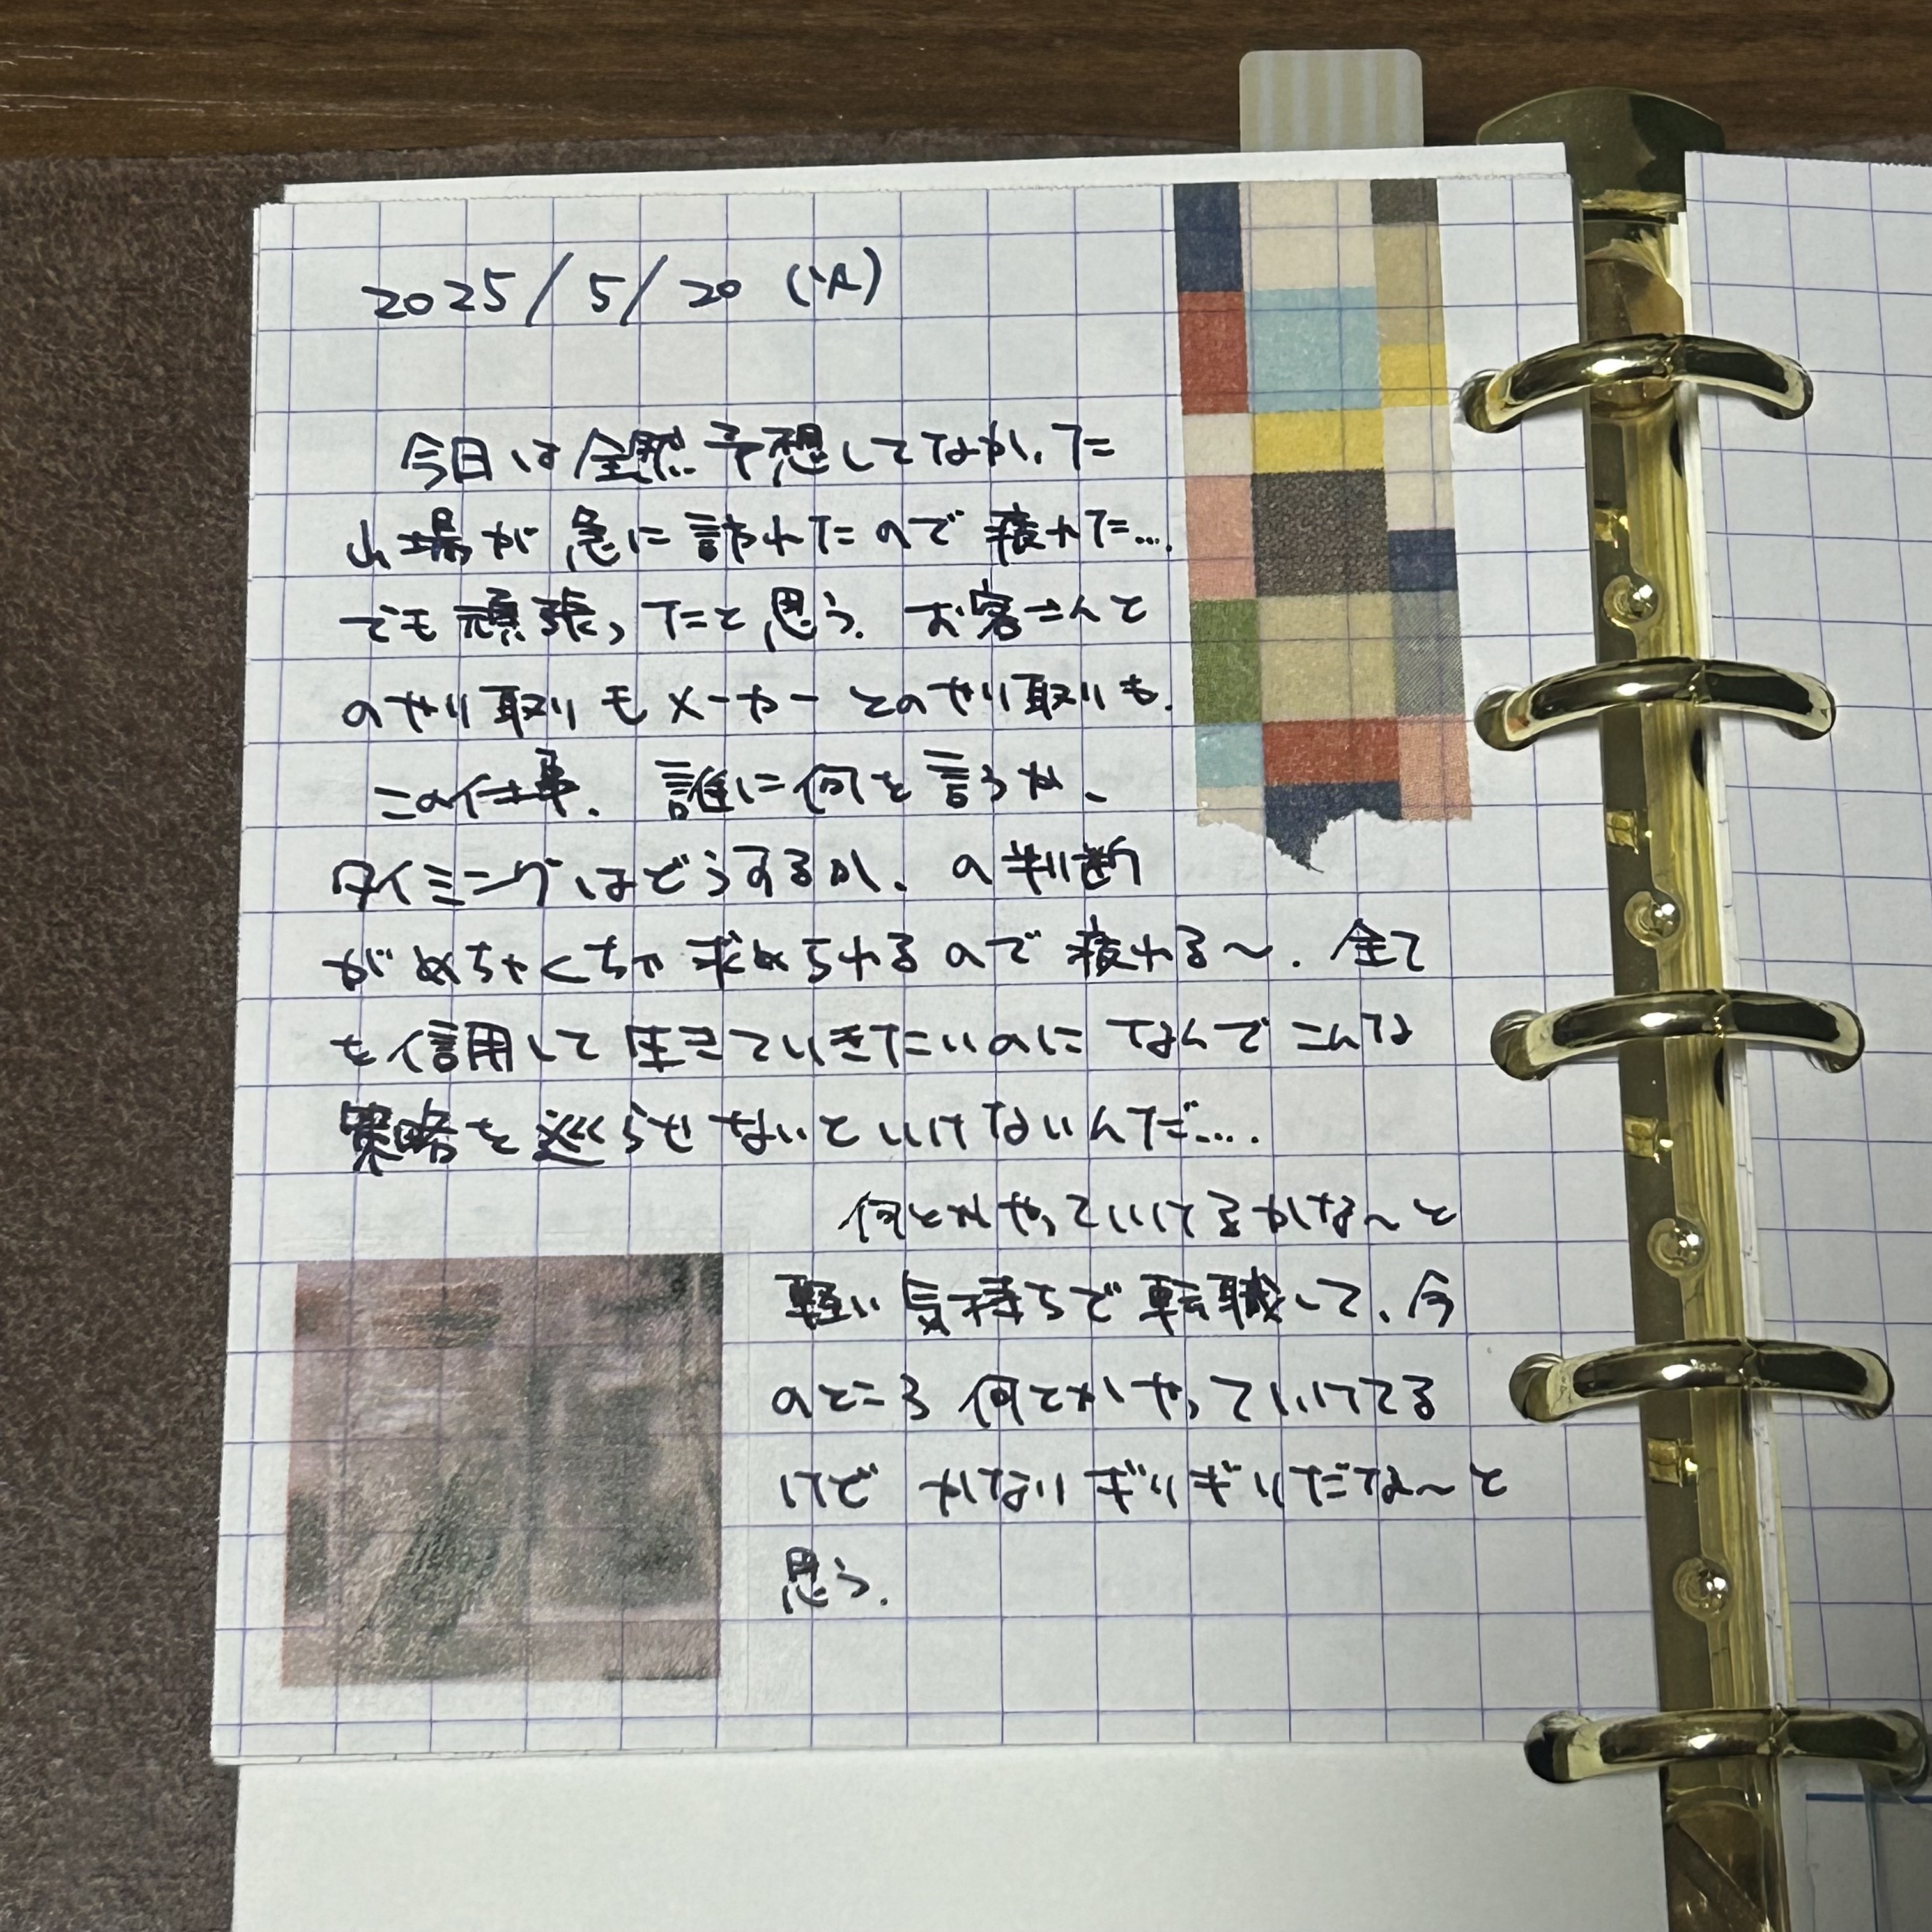 2025/5/20 (火)
今日は全然予想してなかった
山場が急に訪れたので疲れた…。
でも頑張ったと思う。お客さんと
のやり取りもメーカーとのやり取りも。
この仕事、誰に何を言うか、
タイミングはどうするか、の判断
がめちゃくちゃ求められるので疲れる〜。全て
を信用して生きていきたいのになんでこんな
策略を巡らせないといけないんだ…。
何とかやっていけるかな〜と
軽い気持ちで転職して、今
のところ何とかやっていけてる
けど かなりギリギリだな〜と
思う。